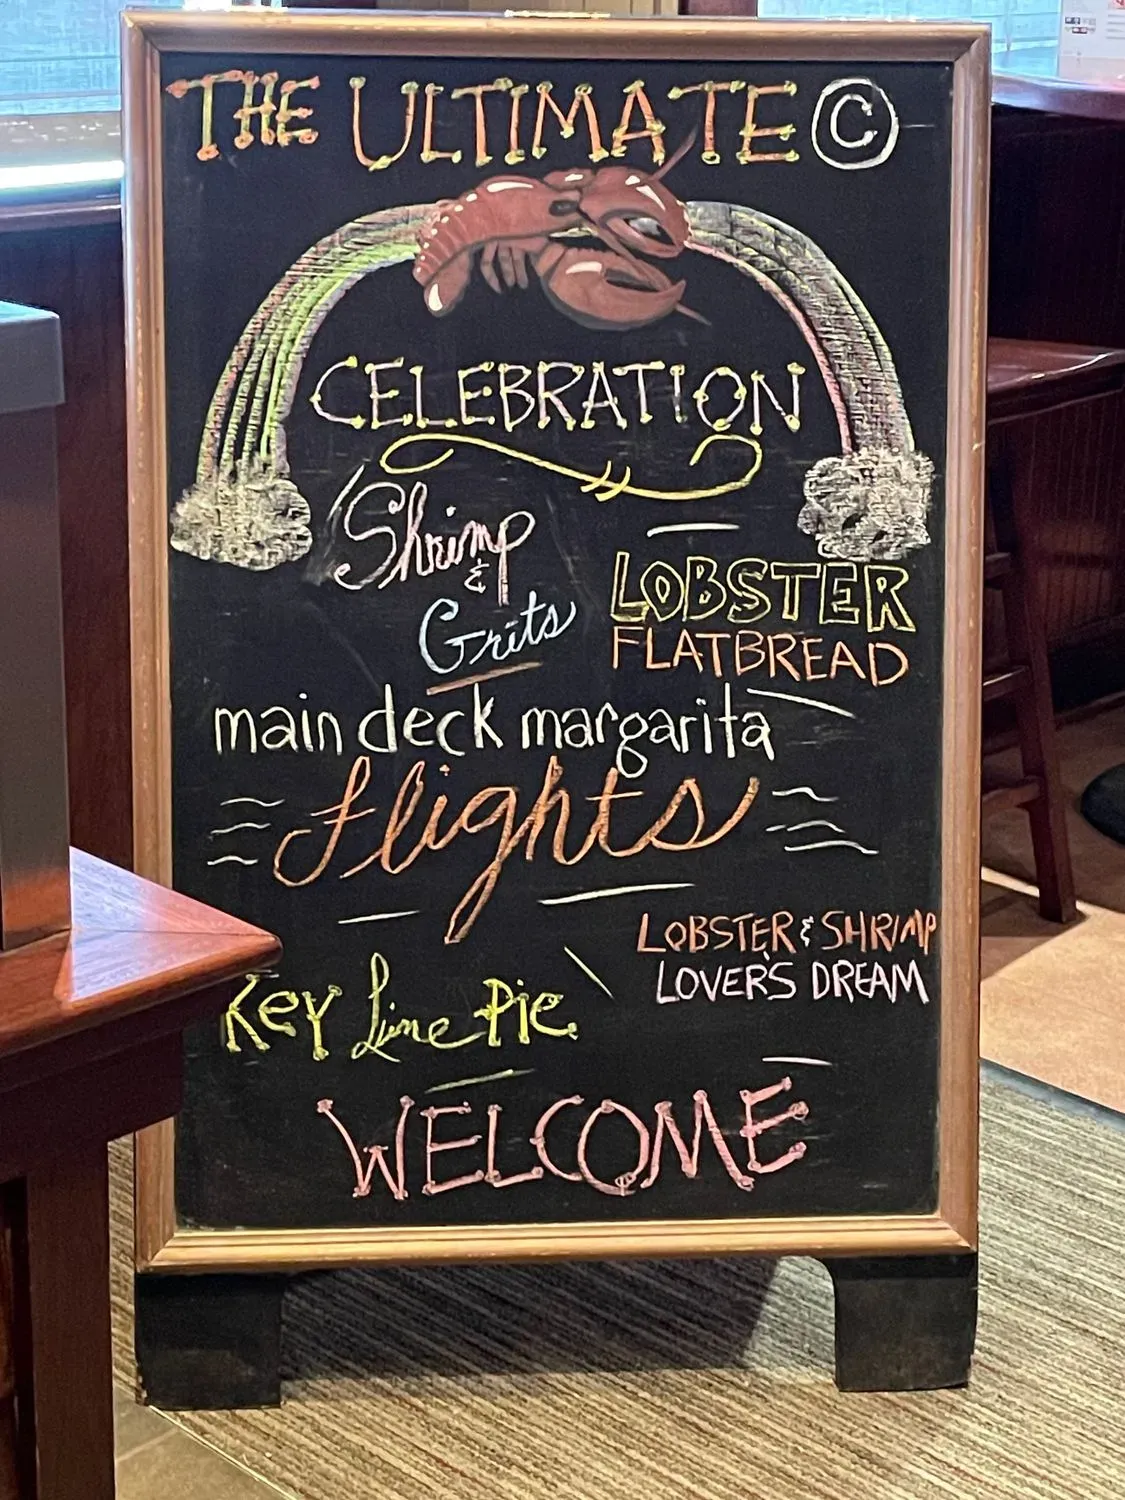 THE ULTIMATE ©
CELEBRATION
Shrimp
&
Grits
LOBSTER
FLATBREAD
main deck margarita
flights
LOBSTER & SHRIMP
LOVERS DREAM
Key Lime Pie
WELCOME